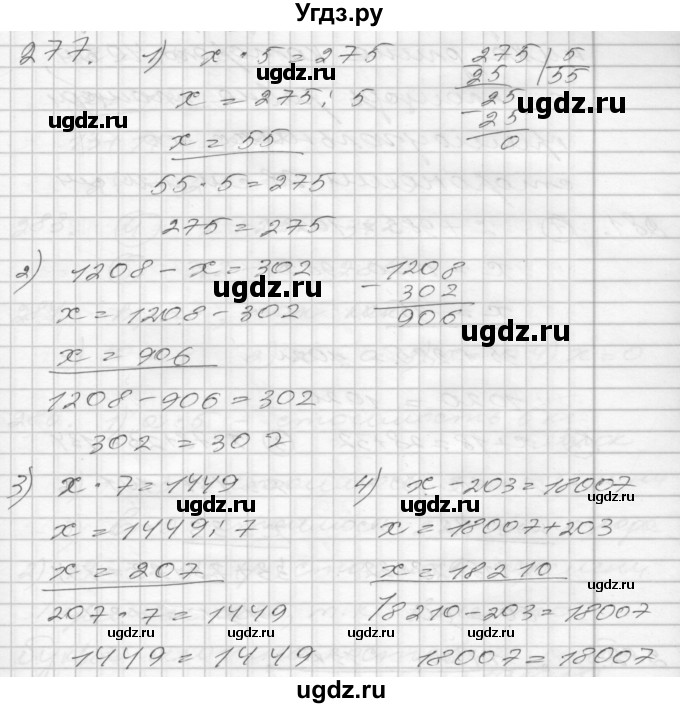 Угдз.ру
277. 1) x · 5 = 275
x = 275 : 5
x = 55
55 · 5 = 275
275 = 275
275 | 5
25 55
25
- 25
0
2) 1208 - x = 302
x = 1208 - 302
x = 906
1208 - 906 = 302
302 = 302
1208
- 302
906
3) x · 7 = 1449
x = 1449 : 7
x = 207
207 · 7 = 1449
1449 = 1449
4) x - 203 = 18007
x = 18007 + 203
x = 18210
18210 - 203 = 18007
18007 = 18007
ugdz.ru
ugdz.ru
ugdz.ru
ugdz.ru
ugdz.ru
ugdz.ru
ugdz.ru
ugdz.ru
ugdz.ru
ugdz.ru
ugdz.ru
ugdz.ru
ugdz.ru
ugdz.ru